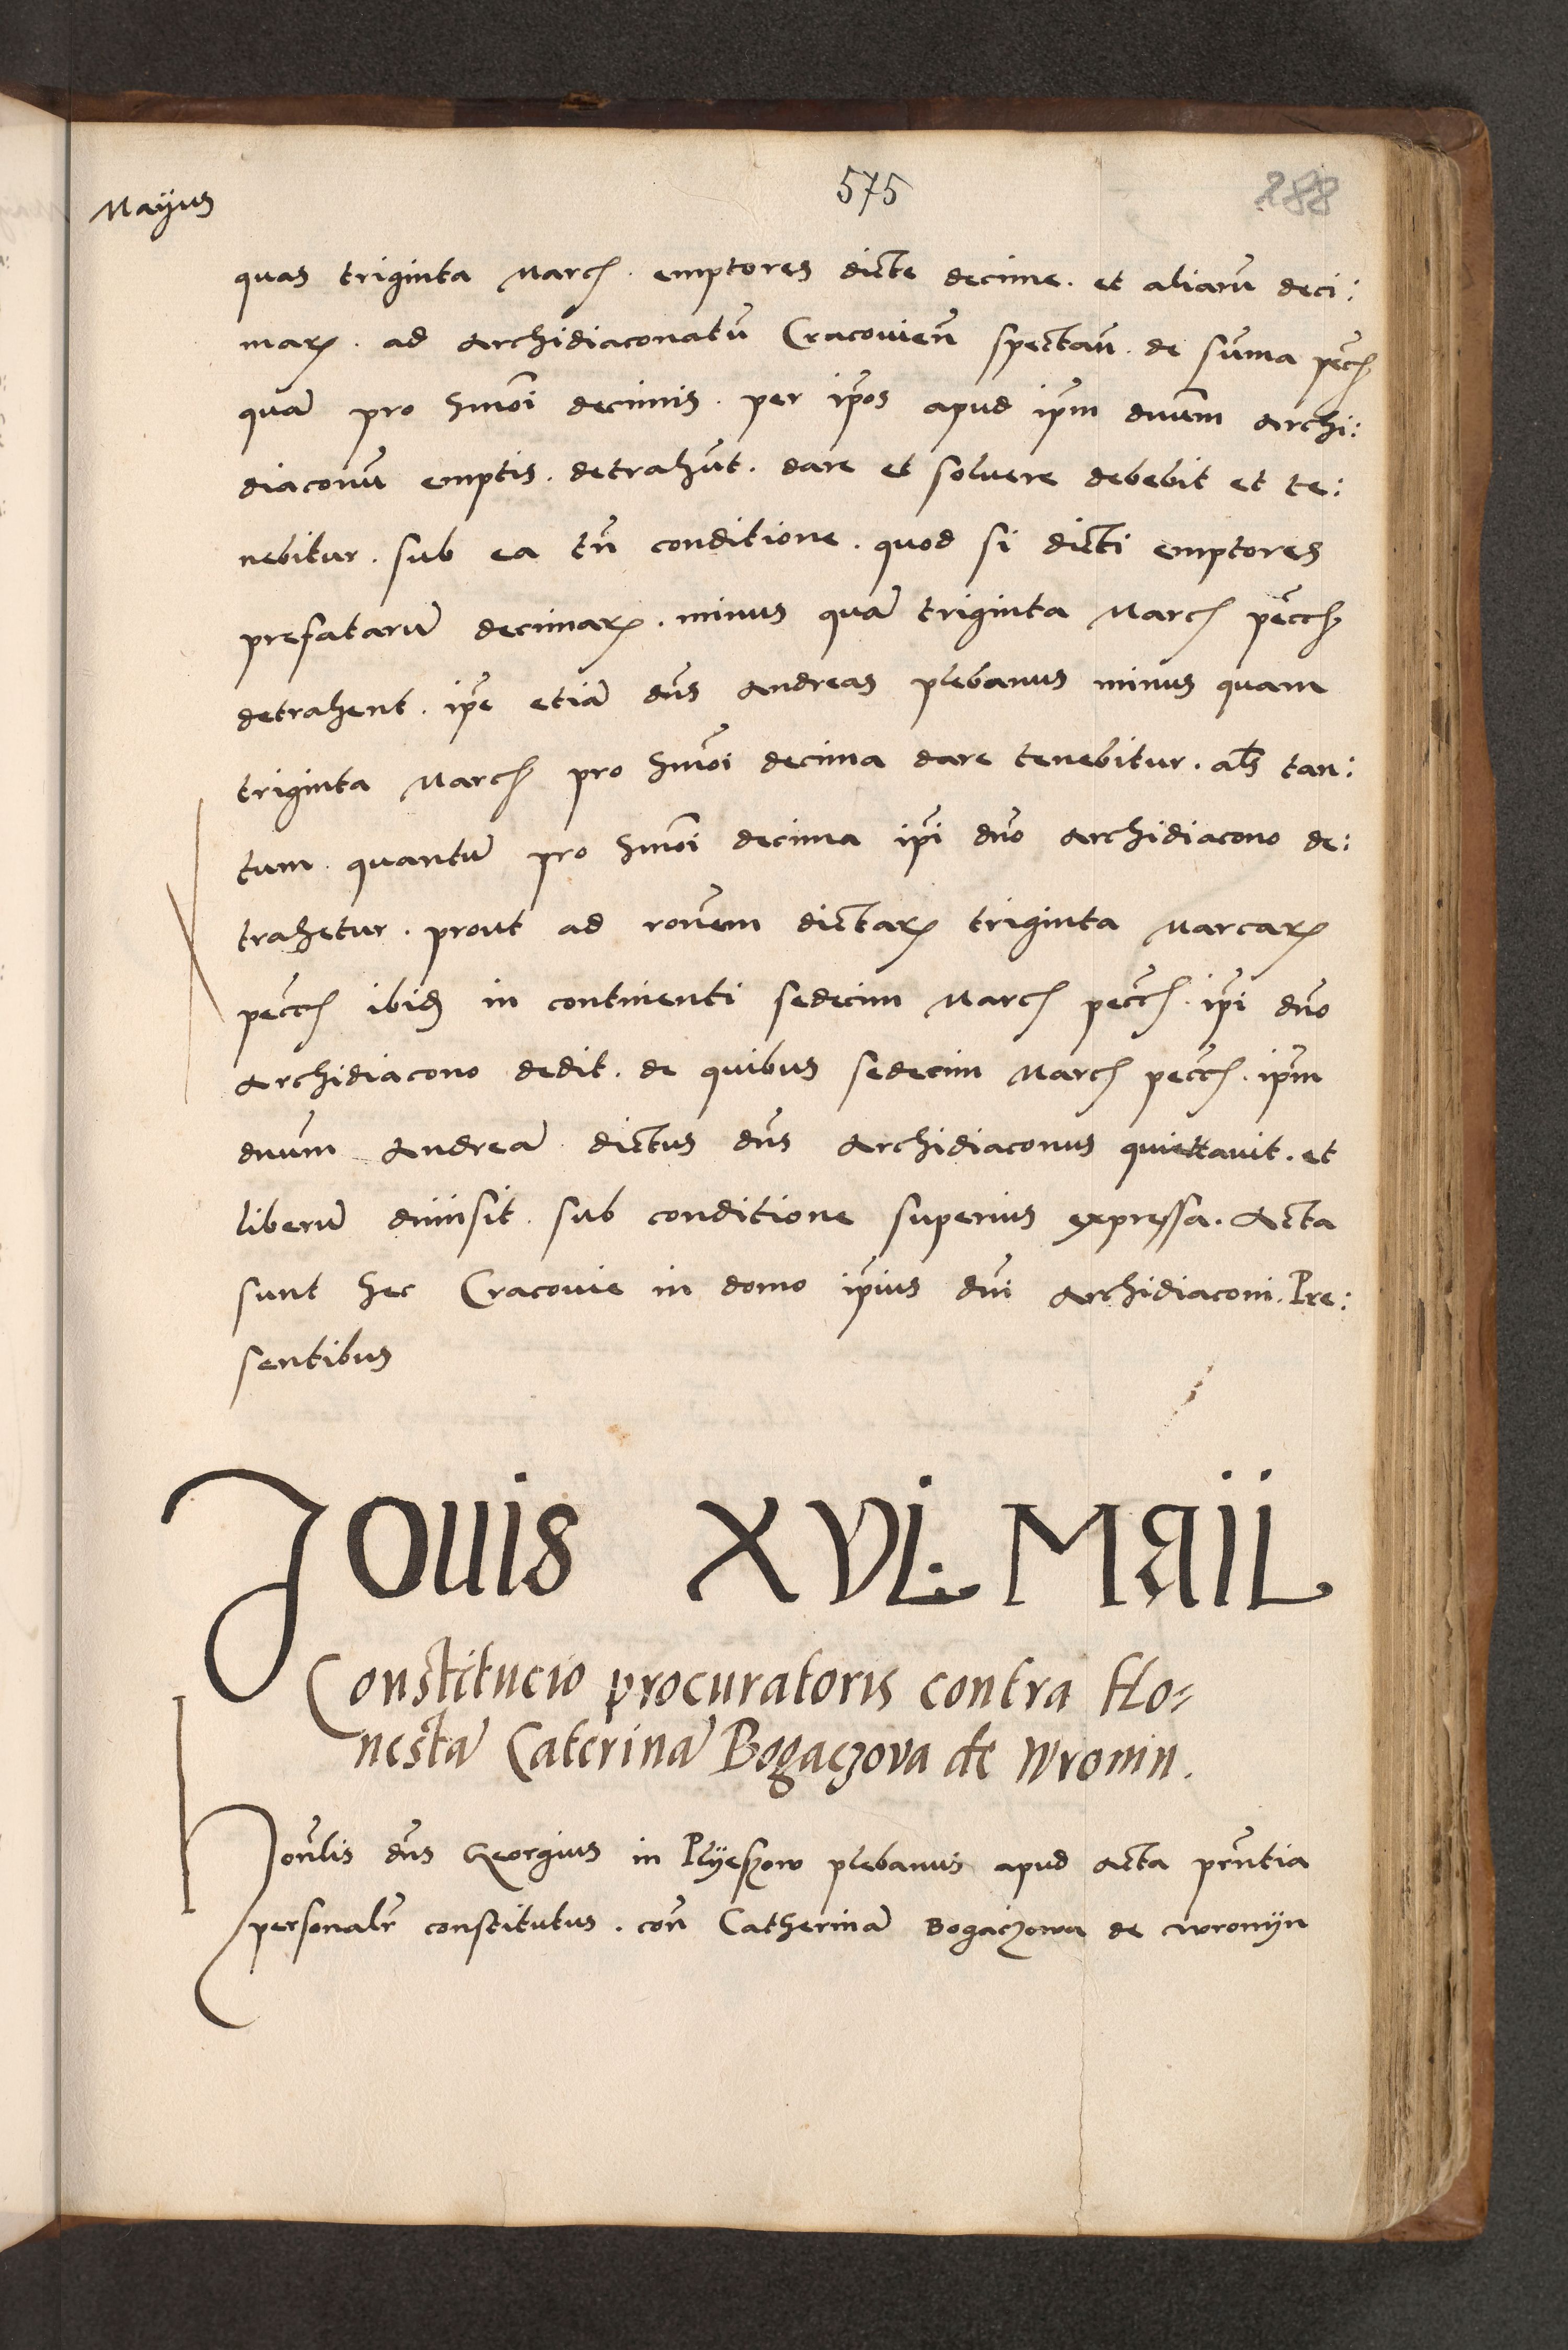 575
288
Mayus
quas triginta March. emptores dicte decime. et aliarũ deci:
maꝝ. ad Archidiaconatũ Cracouieñ spectañ. de sũma pecc̃
quã pro hmõi decimis. per ip̃os apud ip̃m dnũm Archi:
diaconũ emptis. detrahũt. dare et soluere debebit et te:
nebitur. sub ea tñ conditione. quod si dicti emptores
prefatarũ decimaꝝ. minus quã triginta March pecc̃
detrahent. ip̃e etiã dñs Andreas plebanus minus quam
triginta March pro hmõi decima dare tenebitur. als̃ tan:
tum. quantũ pro hmõi decima ip̃i dño Archidiacono de:
trahetur. prout ad rõnem dictaꝝ triginta Marcaꝝ
pecc̃ ibid in continenti sedecim March pecc̃. ip̃i dño
Archidiacono dedit. de quibus sedecim March pecc̃. ip̃m
dnũm Andreã dictus dñs Archidiaconus quiettauit. et
liberũ dimisit. sub conditione superius expressa. Acta
sunt hec Cracouie in domo ip̃ius dñi Archidiaconi. Pre:
sentibus
Jouis XVI. Maii
Constitucio procuratoris contra Ho=
nestã Caterinã Bogaczova de Wronin.
Honl̃is dñs Georgius in Plyeschow plebanus apud Acta pñtia
personalr̃ constitutus. coñ Catherinã Bogaczowa de Wronyn